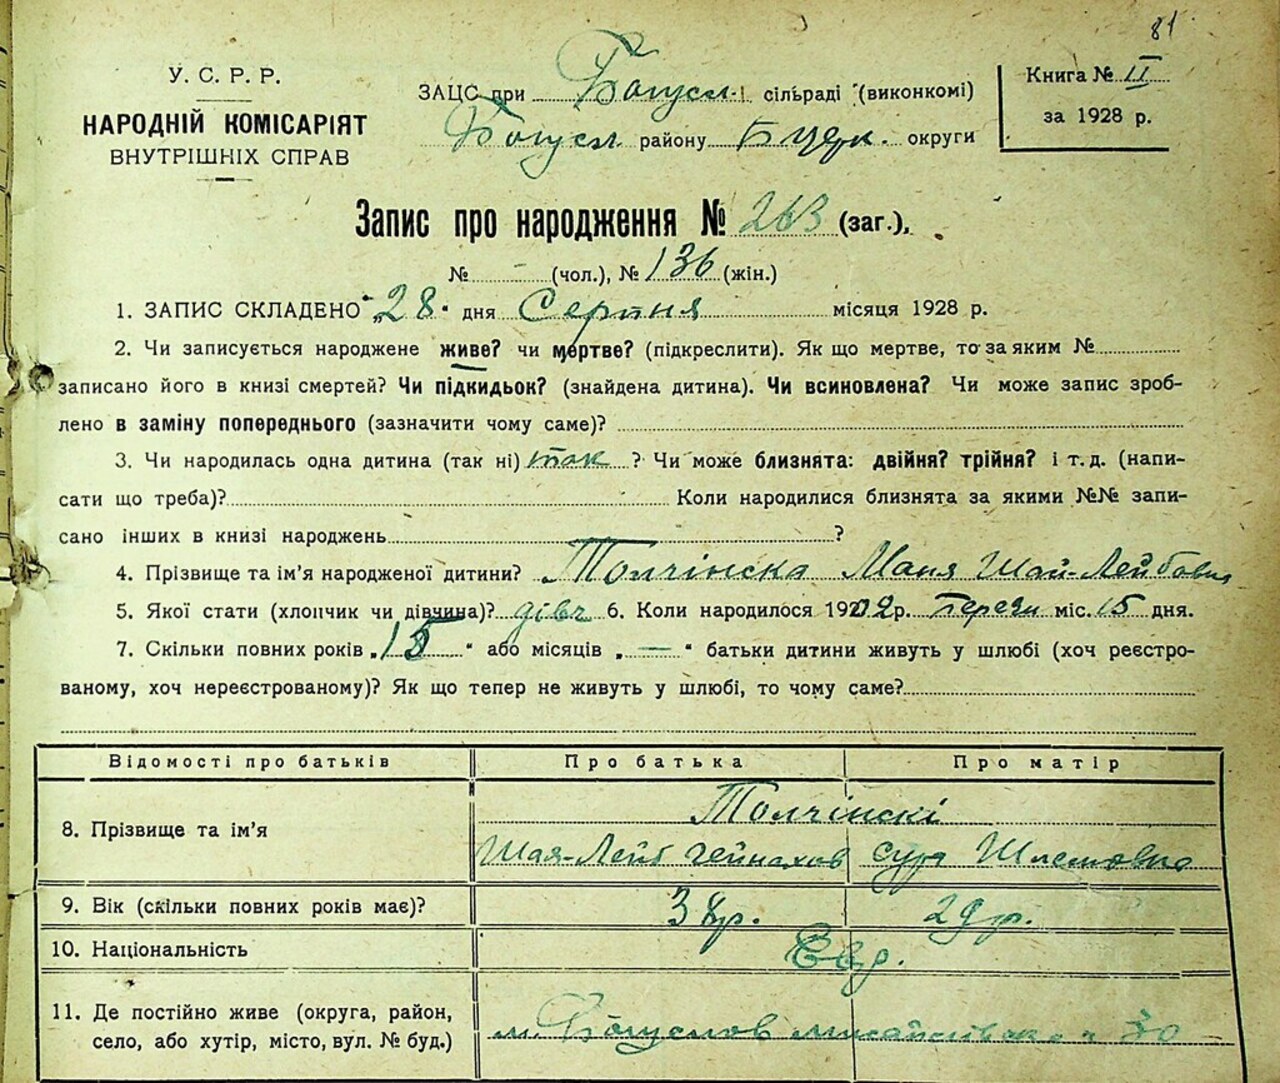 81
У. С. Р. Р.
НАРОДНІЙ КОМІСАРІЯТ
ВНУТРІШНІХ СПРАВ
ЗАЦС при Богусл. сільраді (виконкомі)
Богусл. району Б церк. округи
Книга № II
за 1928 р.
Запис про народження № 263 (заг.),
№ - (чол.), № 136 (жін.)
1. ЗАПИС СКЛАДЕНО „28" дня Серпня місяця 1928 р.
2. Чи записується народжене живе? чи мертве? (підкреслити). Як що мертве, то за яким №
записано його в книзі смертей? Чи підкидьок? (знайдена дитина). Чи всиновлена? Чи може запис зроб-
лено в заміну попереднього (зазначити чому саме)?
3. Чи народилась одна дитина (так ні) так ? Чи може близнята: двійня? трійня? і т. д. (напи-
сати що треба)? Коли народилися близнята за якими №№ запи-
сано інших в книзі народжень ?
4. Прізвище та ім'я народженої дитини? Толчінска Маня Шай-Лейбовна
5. Якої стати (хлопчик чи дівчина)? дівч 6. Коли народилося 192 р. міс. 15 дня.
7. Скільки повних років „ " або місяців „—" батьки дитини живуть у шлюбі (хоч реєстро-
ваному, хоч нереєстрованому)? Як що тепер не живуть у шлюбі, то чому саме?
Відомості про батьків Про батька Про матір
8. Прізвище та ім'я Толчінскі
Шая-Лейб Сура Шлемовна
9. Вік (скільки повних років має)? 38 р. 29 р.
10. Національність Євр.
11. Де постійно живе (округа, район,
село, або хутір, місто, вул. № буд.) м.